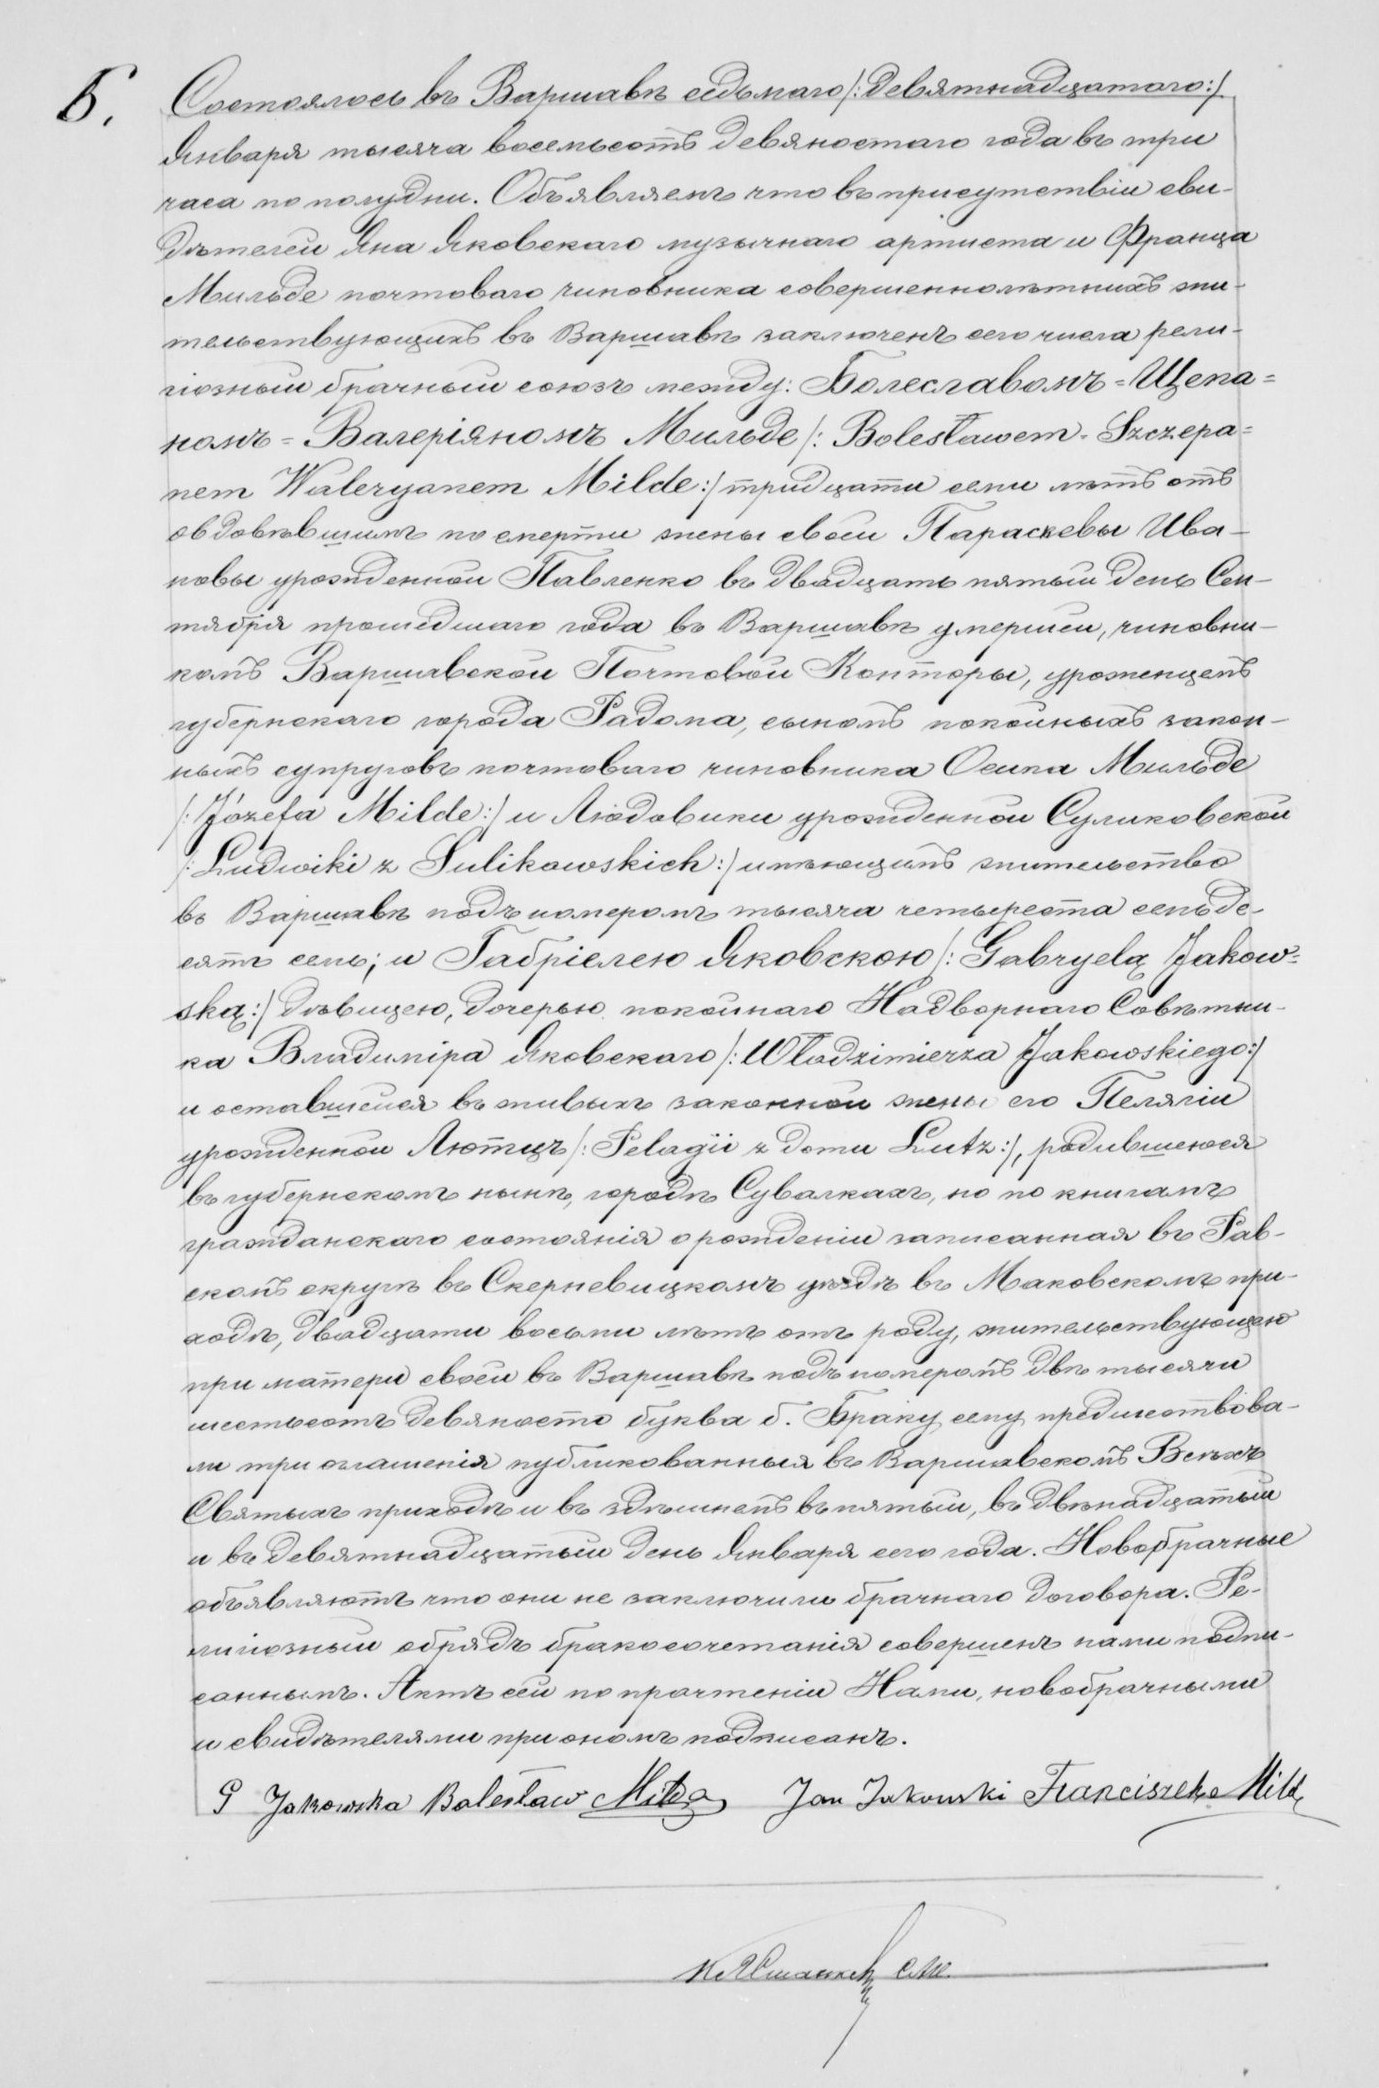 Б.
Состоялось въ Варшавѣ седьмаго /:девятнадцатаго:/
Января тысяча восемьсотъ девяностаго года въ три
часа по полудни. Объявляемъ что въ присутствіи сви-
дѣтелей Яна Яковскаго музычнаго артиста и Франца
Мильде почтоваго чиновника совершеннолѣтнихъ жи-
тельствующихъ въ Варшавѣ заключенъ сего числа рели-
гіозный брачный союзъ между: Болеславомъ=Щепа=
номъ=Валеріяномъ Мильде /: Bolesławem-Szczepa=
nem Waleryanem Milde:/ тридцати семи лѣтъ отъ
овдовѣвшимъ по смерти жены своей Параскевы Ива-
новы урожденной Павленко въ двадцать пятый день Сен-
тября прошедшаго года въ Варшавѣ умершей, чиновни-
комъ Варшавской Почтовой Конторы, уроженцемъ
губернскаго города Радома, сыномъ покойныхъ закон-
ныхъ супруговъ почтоваго чиновника Осипа Мильде
/:Józefa Milde:/ и Людовики урожденной Суликовской
/:Ludwiki z Sulikowskich:/ имѣющимъ жительство
въ Варшавѣ подъ номеромъ тысяча четыреста семьде-
сятъ семь; и Габріелею Яковскою /: Gabryelą Jakow=
ską:/ дѣвицею, дочерью покойнаго Надворнаго Совѣтни-
ка Владиміра Яковскаго /: Włodzimierza Jakowskiego:/
и оставшейся въ живыхъ законной жены его Пелягіи
урожденной Лютцъ /: Pelagii z domu Lutz:/, родившеюся
въ губернскомъ нынѣ, городѣ Сувалкахъ, но по книгамъ
гражданскаго состоянія о рожденіи записанная въ Рав-
скомъ округѣ въ Скерневицкомъ уѣздѣ въ Маковскомъ при-
ходѣ, двадцати восьми лѣтъ отъ роду, жительствующею
при матери своей въ Варшавѣ подъ номеромъ двѣ тысячи
шестьсотъ девяносто буква б. Браку сему предшествова-
ли три оглашенія публикованныя въ Варшавскомъ Всѣхъ
Святыхъ приходѣ и въ здѣшнемъ въ пятый, въ двѣнадцатый
и въ девятнадцатый день Января сего года. Новобрачные
объявляютъ что они не заключили брачнаго договора. Ре-
лигіозный обрядъ бракосочетанія совершенъ нами подпи-
саннымъ. Актъ сей по прочтеніи Нами, новобрачными
и свидѣтелями при ономъ подписанъ.
G Jakowska Bolesław Milde Jan Jakowski Franciszek Milde